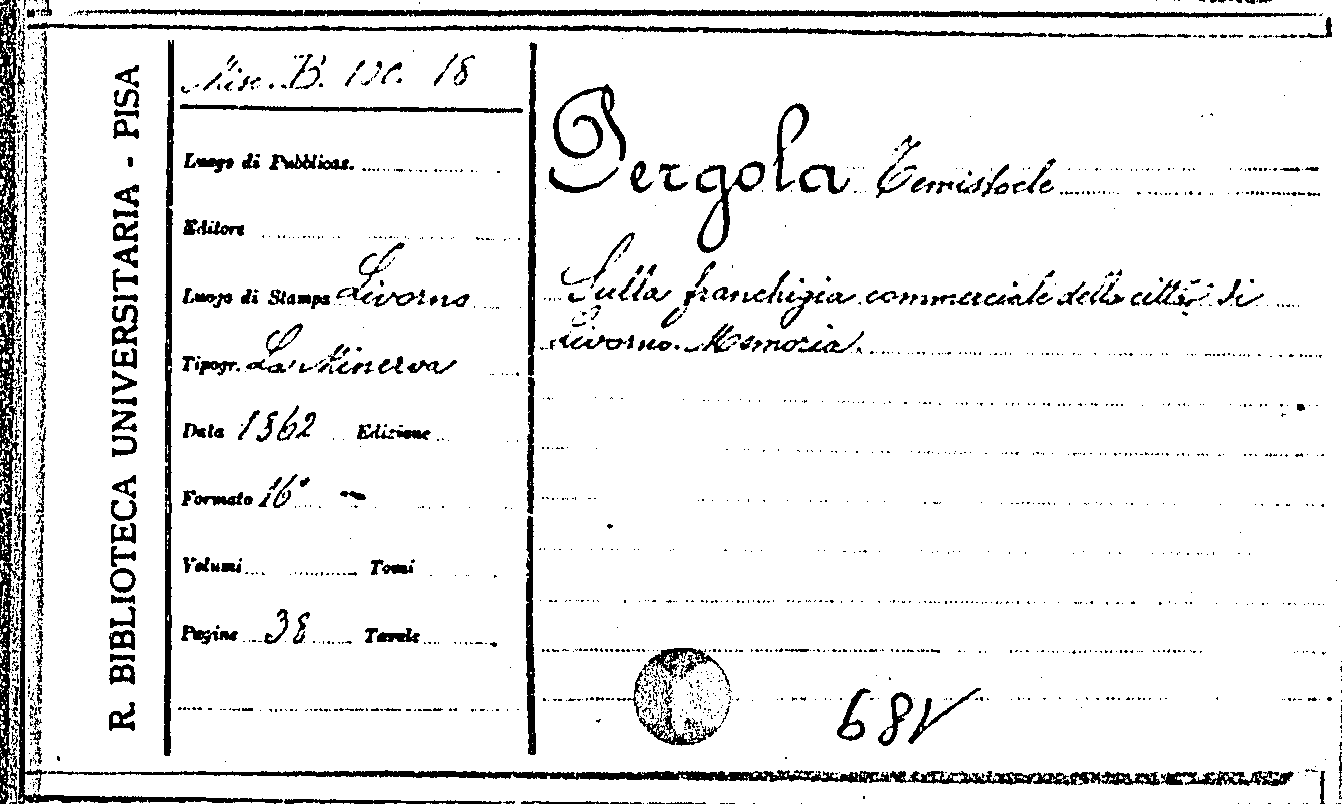 R. BIBLIOTECA UNIVERSITARIA - PISA
Misc. B. 18
Luogo di Pubblicaz.
Editore
Luogo di Stampa Livorno
Tipogr. La Minerva
Data 1862 Edizione
Formato 16°
Volumi Tomi
Pagine 38 Tavole
Pergola Temistocle
Sulla franchigia commerciale della città di
Livorno. Memoria.